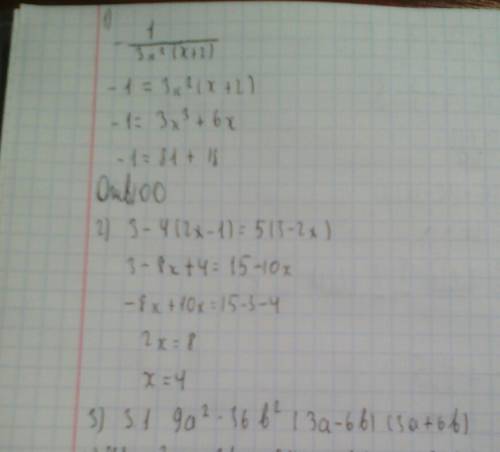 1)
- 1 / 3x²(x+2)
-1 = 3x²(x+2)
-1 = 3x³ + 6x
-1 = 81 + 18
Отв100
2) 3 - 4(2x-1) = 5(3-2x)
3 - 8x + 4 = 15 - 10x
-8x + 10x = 15 - 3 - 4
2x = 8
x = 4
3) 3.1 9a² - 36b² (3a-6b) (3a+6b)